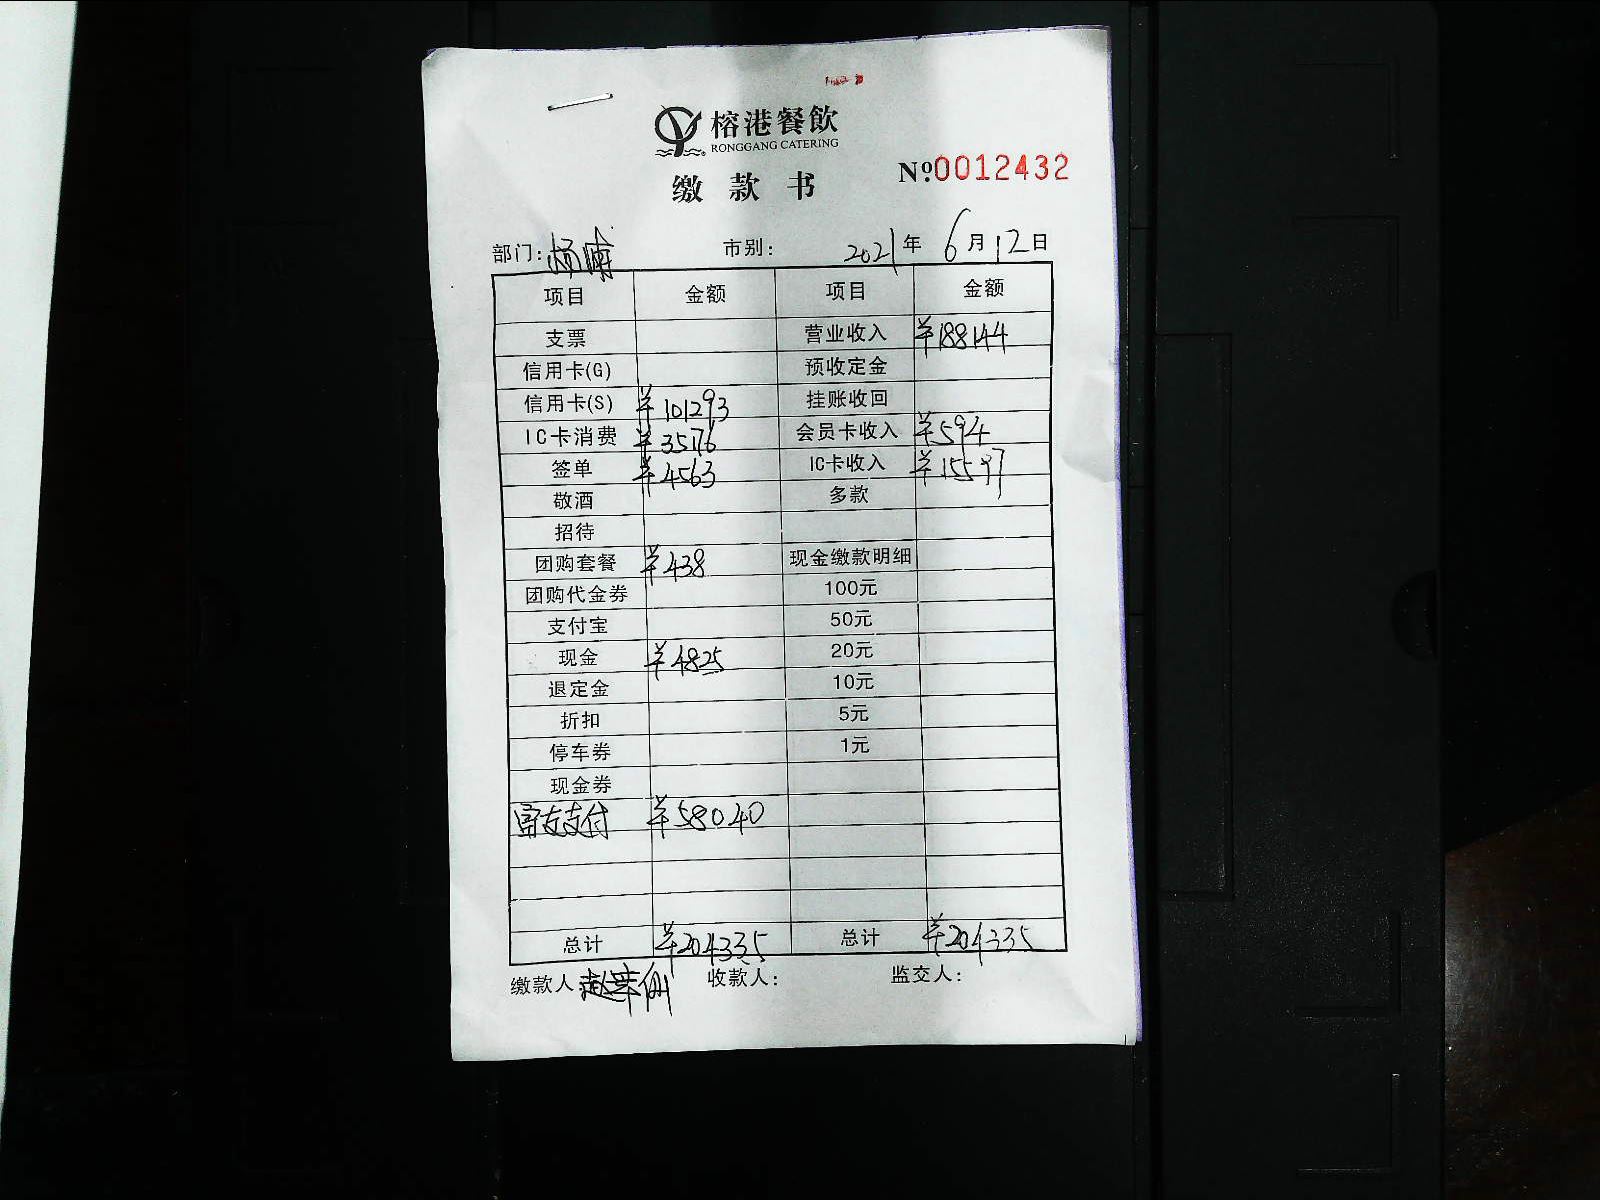 榕港餐飲
RONGGANG CATERING
缴款书
Nº0012432
部门: 杨浦 市别: 2021年 6月12日
项目 金额 项目 金额
支票 营业收入 ¥188144
信用卡(G) 预收定金
信用卡(S) ¥101293 挂账收回
IC卡消费 ¥35176 会员卡收入 ¥594
签单 ¥4563 IC卡收入 ¥15597
敬酒 多款
招待
团购套餐 ¥438 现金缴款明细
团购代金券 100元
支付宝 50元
现金 ¥4825 20元
退定金 10元
折扣 5元
停车券 1元
现金券
富友支付 ¥58040
总计 ¥204335 总计 ¥204335
缴款人 收款人: 监交人: